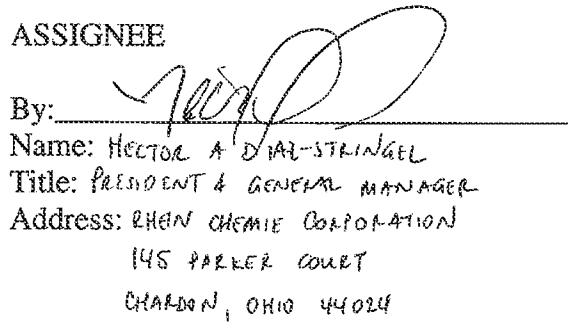 ASSIGNEE
By:
Name: HECTOR A DIAZ-STRINGEL
Title: PRESIDENT & GENERAL MANAGER
Address: RHEIN CHEMIE CORPORATION
145 PARKER COURT
CHARDON, OHIO 44024